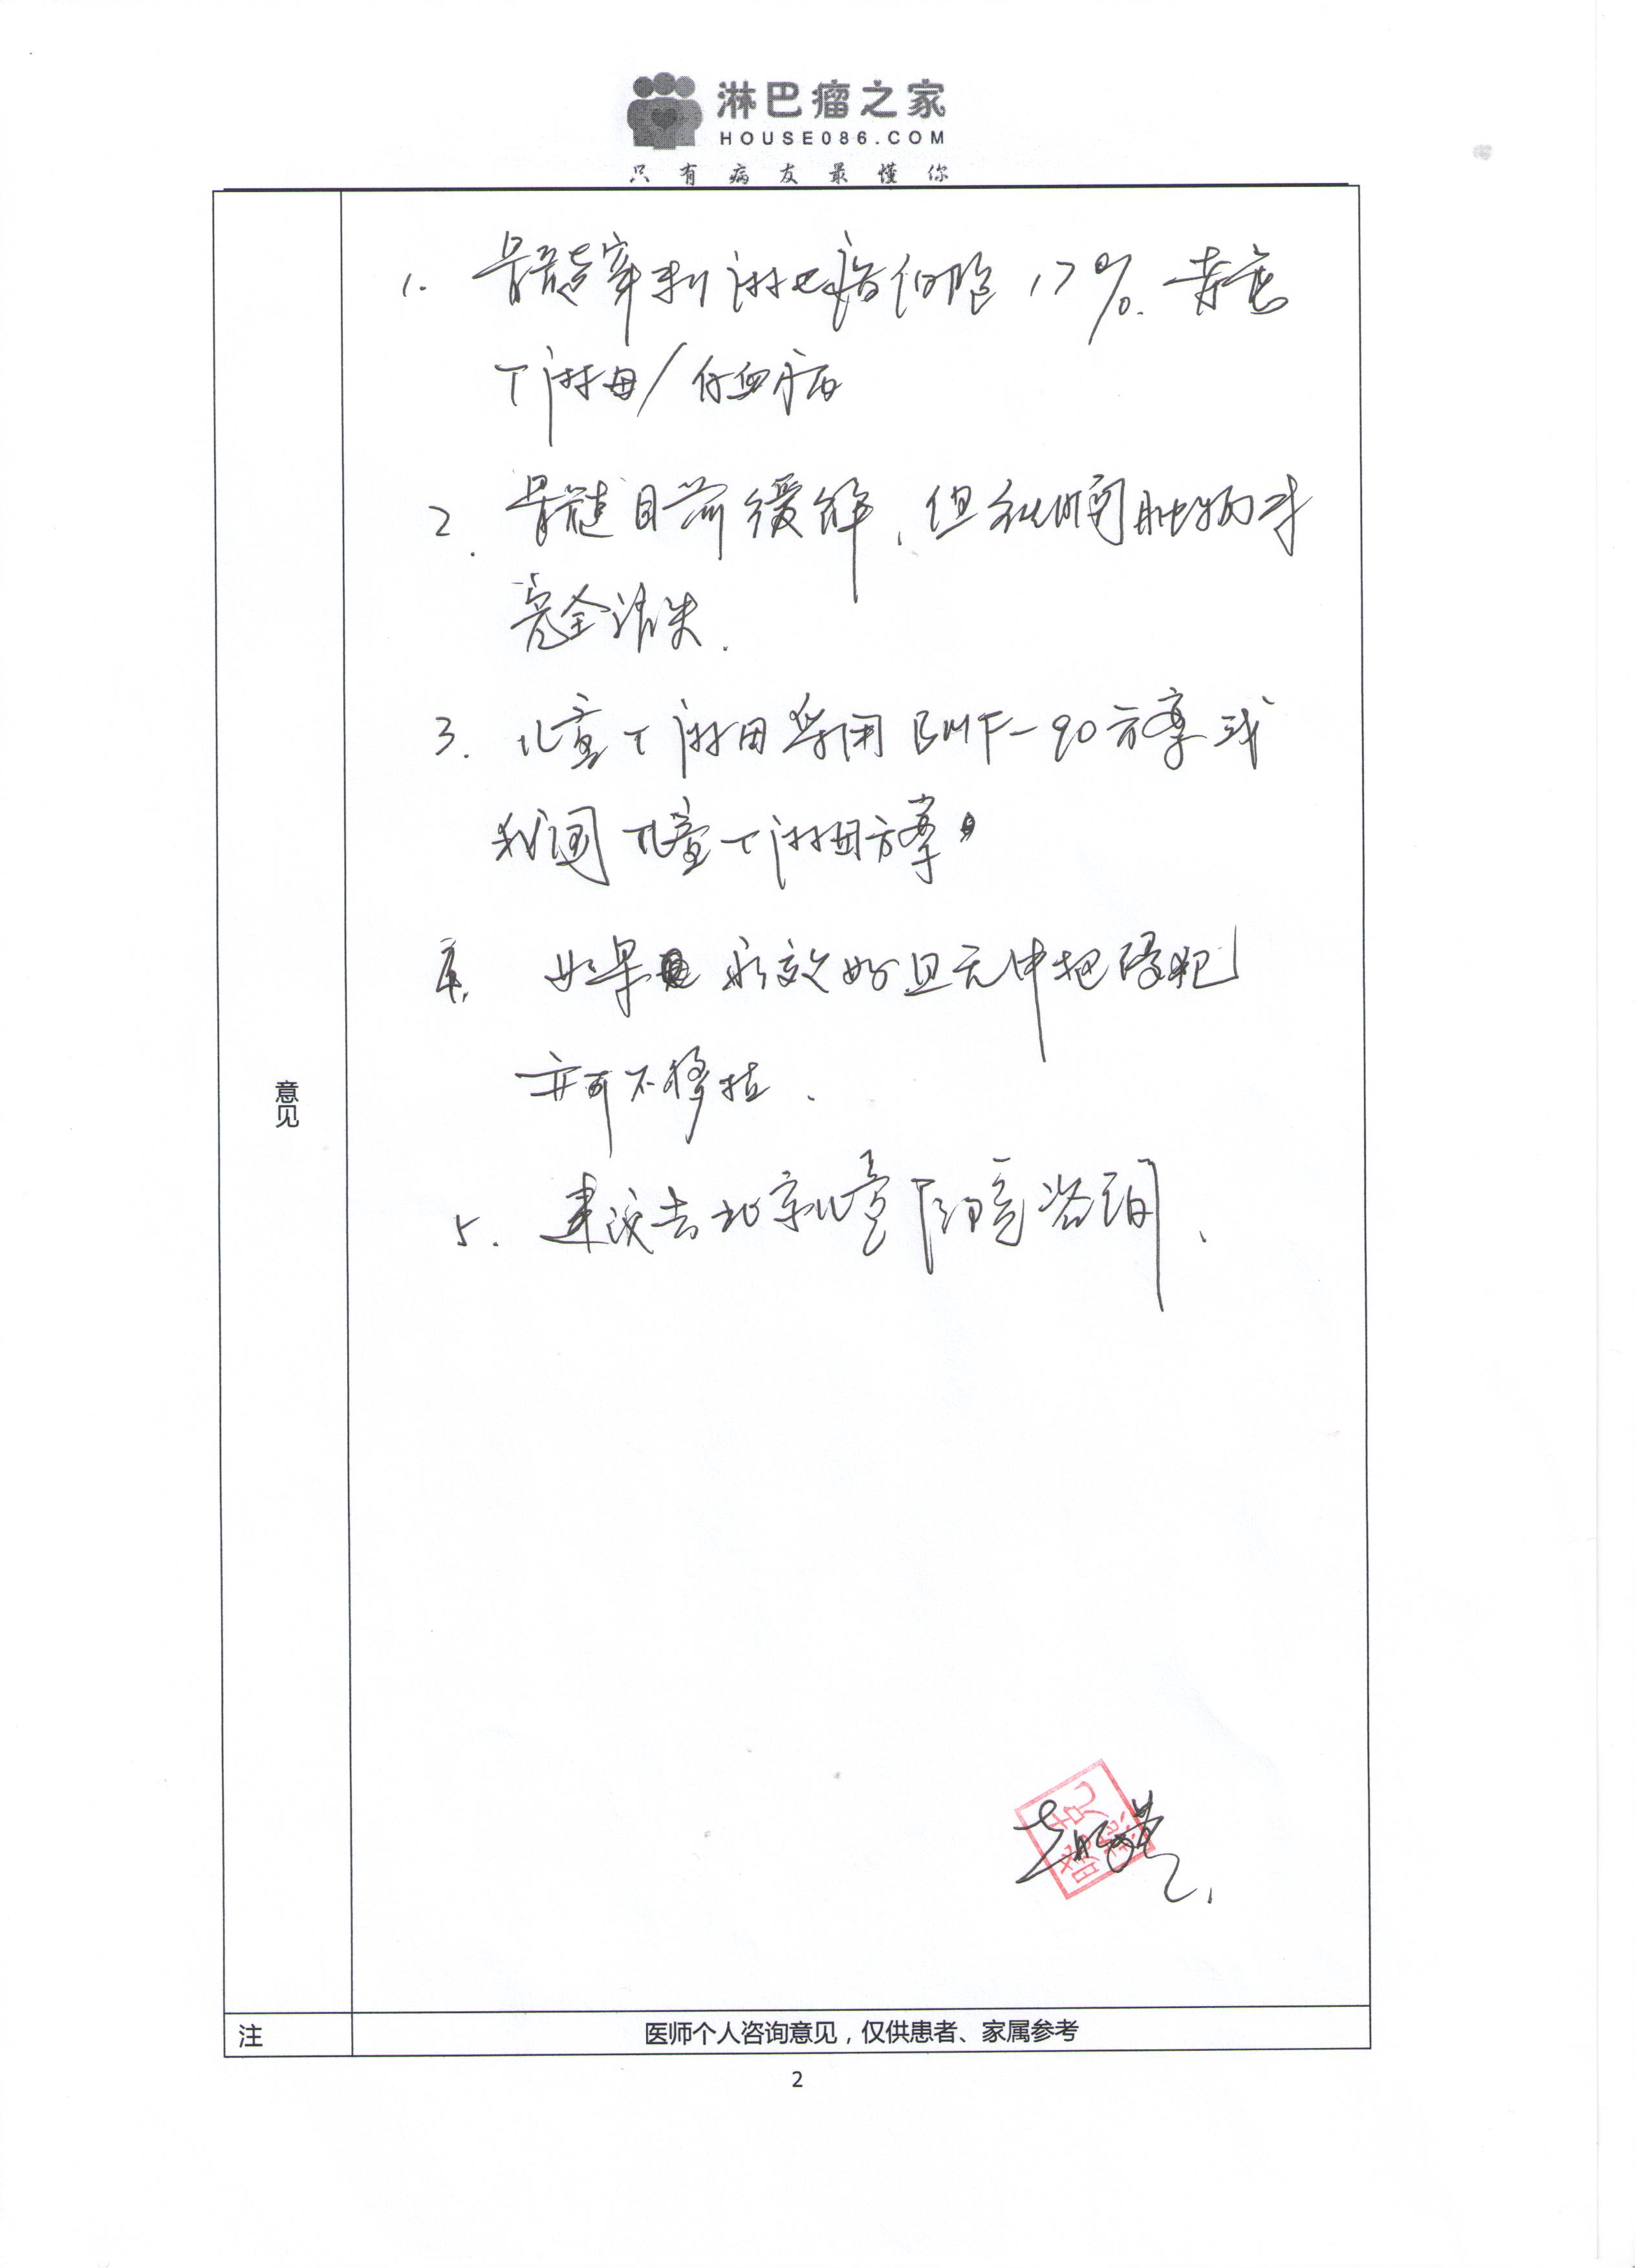 淋巴瘤之家
HOUSE086.COM
只有病友最懂你
意见
1. 骨髓穿刺淋巴瘤细胞17%. 考虑
T淋母/白血病
2. 骨髓目前缓解, 但纵隔肿物未
完全消失.
3. 儿童T淋母采用BMF-90方案或
我国儿童T淋母方案
4. 如果疗效好且无中枢侵犯
亦可不移植.
5. 建议去北京儿童医院咨询.
注
医师个人咨询意见,仅供患者、家属参考
2